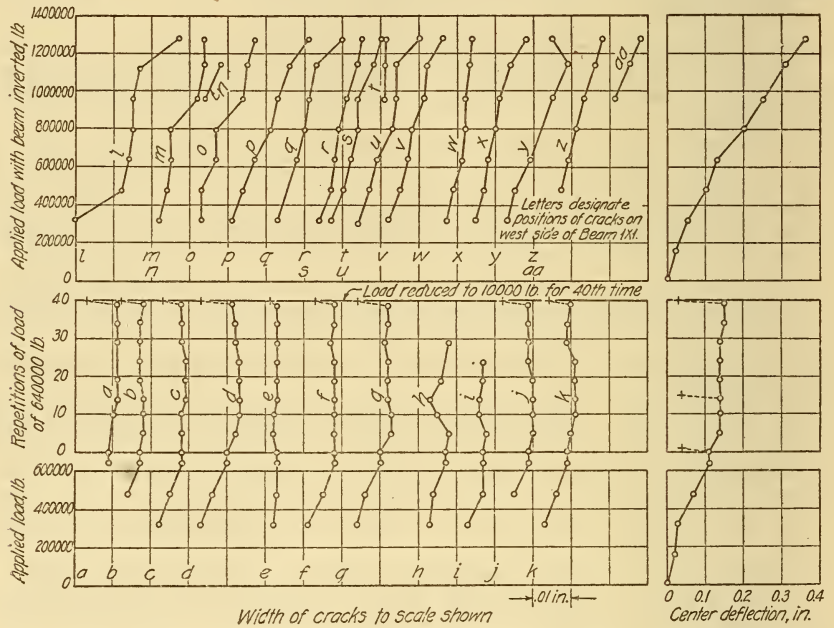 Applied load with beam inverted, lb.
1400000
1200000
1000000
800000
600000
400000
200000
0
l
m
n
o
p
q
r
s
t
u
v
w
x
y
z
aa
Letters designate
positions of cracks on
west side of Beam 1X1.
l
m
o
p
q
r
t
v
w
x
y
z
n
s
u
aa
Load reduced to 10000 lb. for 40th time
Repetitions of load
of 640000 lb.
40
30
20
10
0
a
b
c
d
e
f
g
h
i
j
k
Applied load, lb.
600000
400000
200000
0
a
b
c
d
e
f
g
h
i
j
k
.01 in.
0
0.1
0.2
0.3
0.4
Width of cracks to scale shown
Center deflection, in.